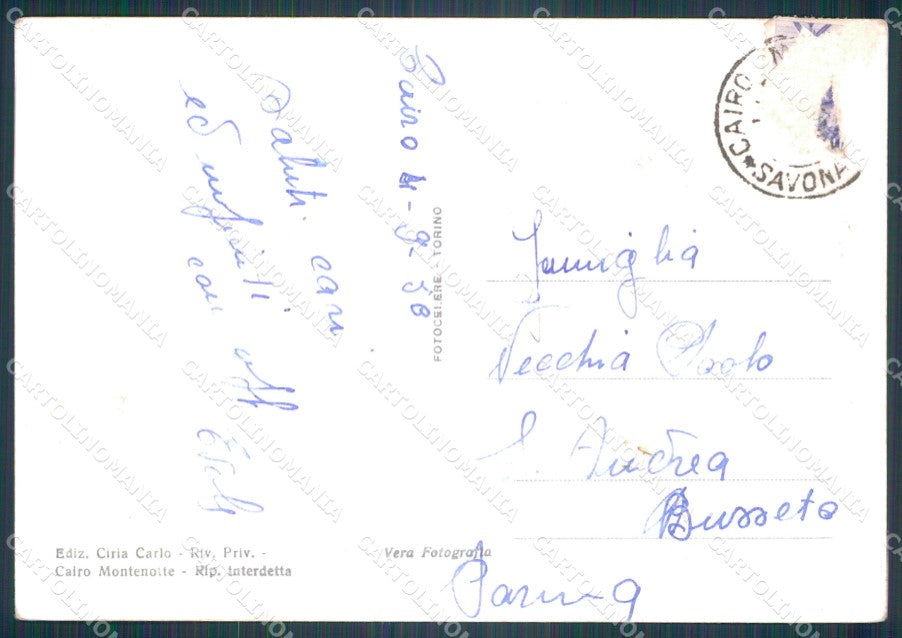 Cairo 4-9-58
Saluti cari
ed infiniti aff
con
Famiglia
Vecchia Paolo
S. Andrea
Busseto
Parma
CAIRO M
SAVONA
FOTOCELERE - TORINO
Ediz. Ciria Carlo - Riv. Priv. -
Cairo Montenotte - Rip. Interdetta
Vera Fotografia
CARTOLINOMANIA